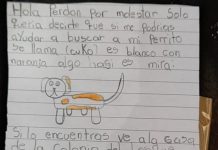 Hola perdon por molestar Solo
queria decirte que si me podrias
ayudar a buscar a mi perrito
Se llama (cuko) es blanco con
naranja algo asi es mira:
Si lo encuentras ve a la casa
de la Colonia del